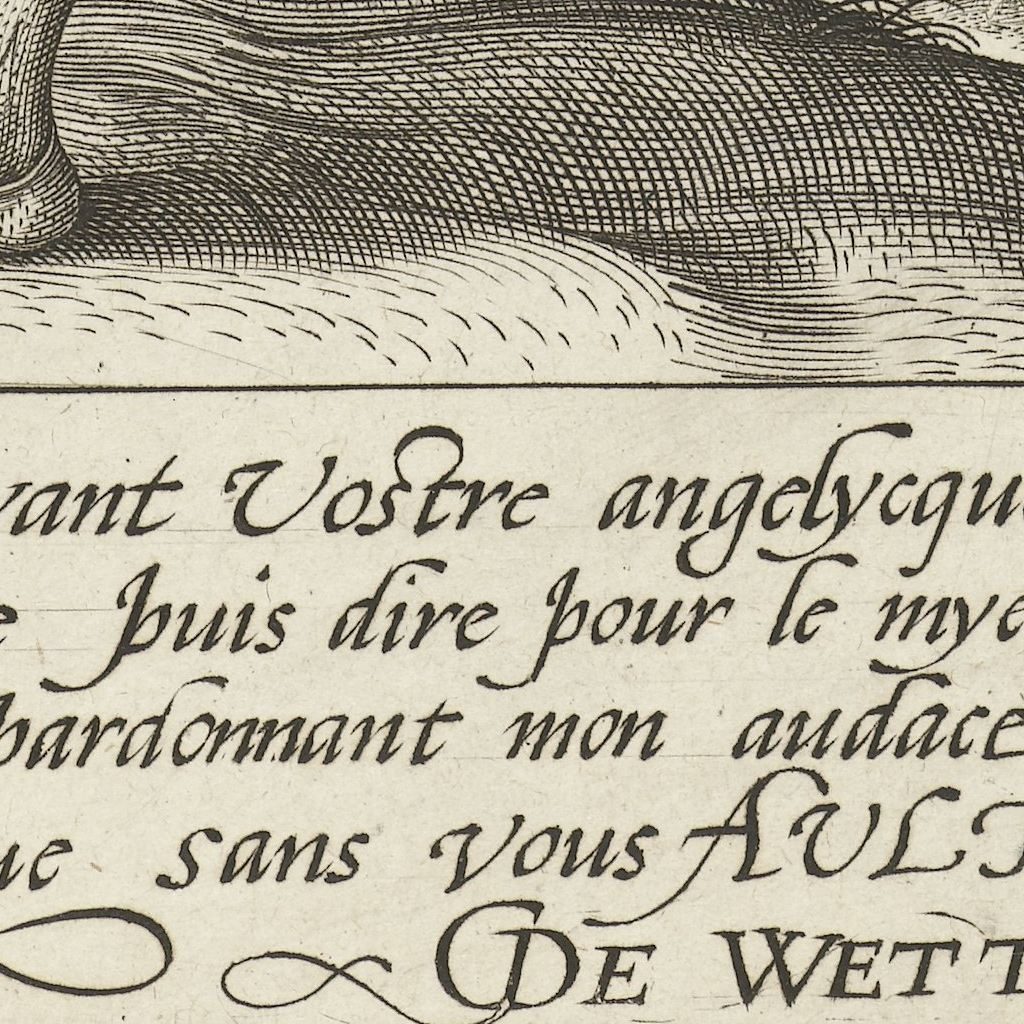 vant Vostre angelycque
e puis dire pour le mye
pardonnant mon audace
ue sans vous AULT
DE WETT